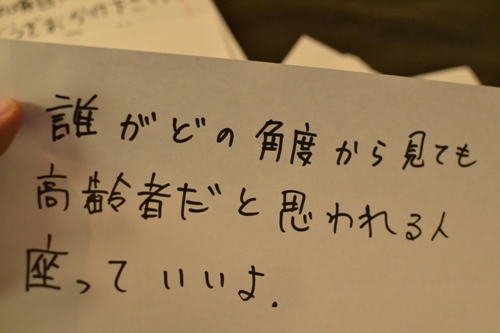 誰がどの角度から見ても
高齢者だと思われる人
座っていいよ.